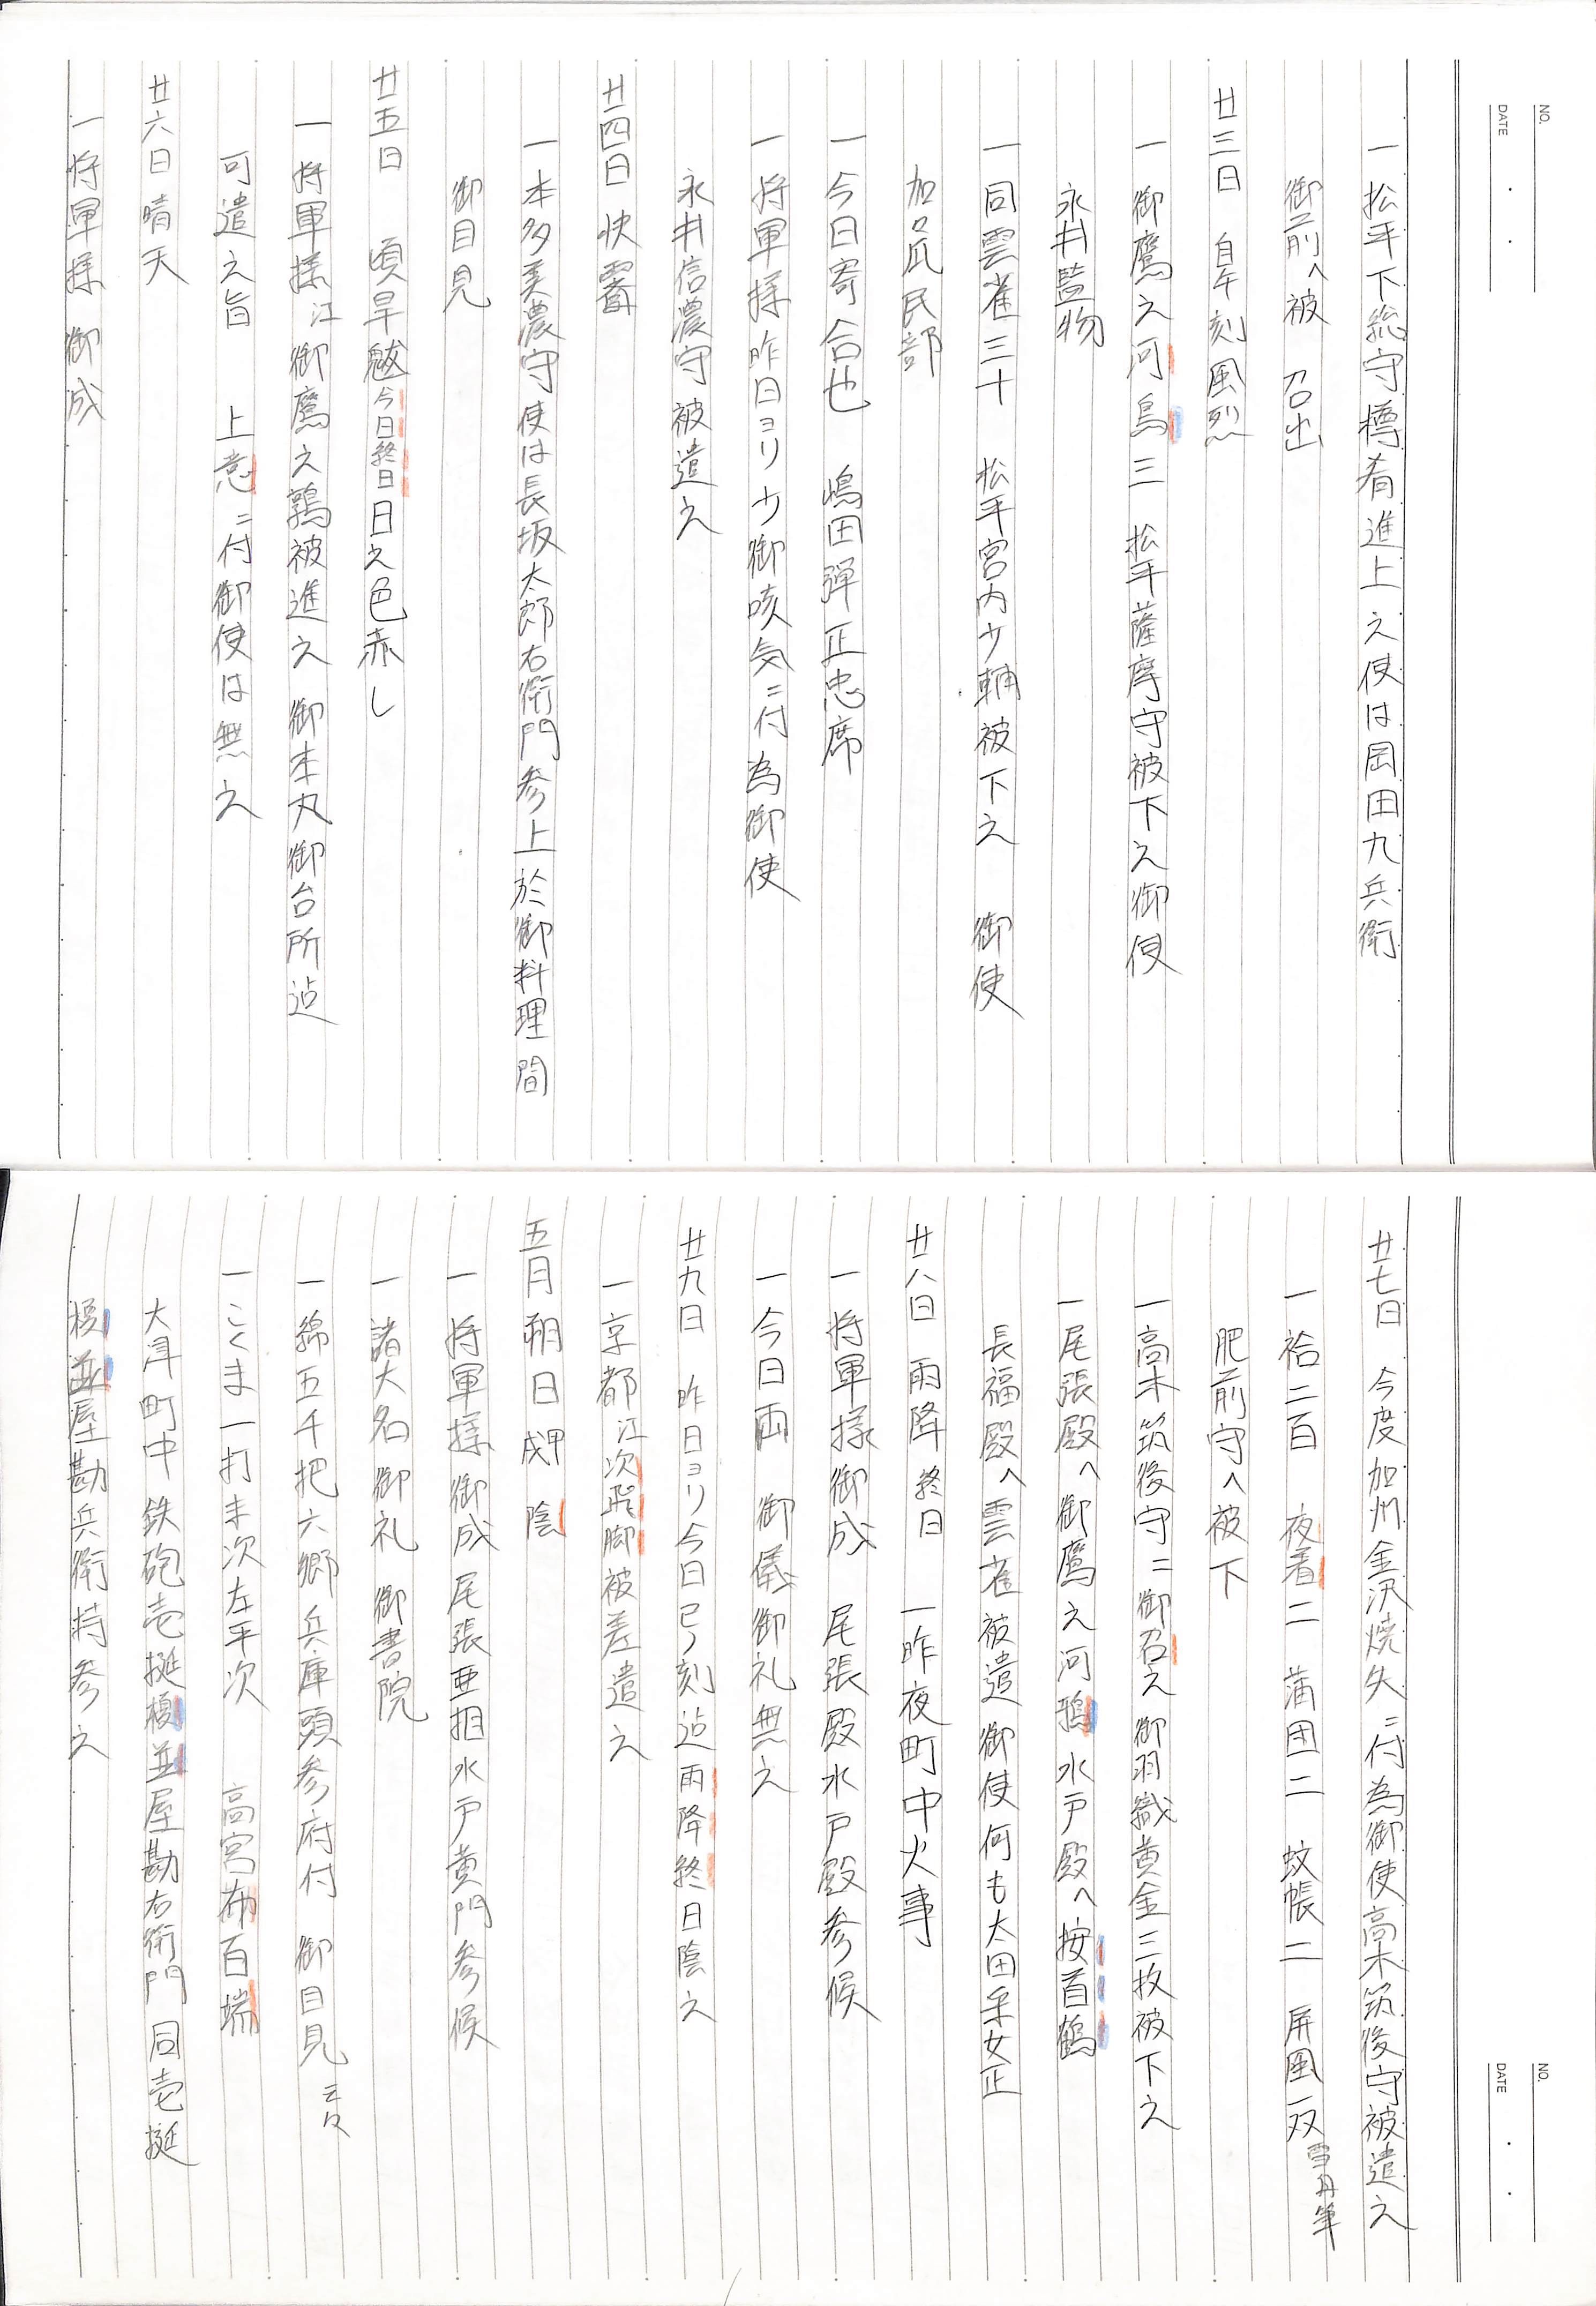 NO.
DATE
一 松平下総守樽肴進上之使は岡田九兵衛
御前へ被 召出
廿三日 自午刻風烈
一 御鷹之河烏三 松平薩摩守被下之御使
永井監物
一 同雲雀三十 松平宮内少輔被下之 御使
加々爪民部
一 今日寄合也 嶋田弾正忠席
一 将軍様昨日ヨリ少御咳気ニ付為御使
永井信濃守被遣之
廿四日 快霽
一 本多美濃守使は長坂太郎右衛門参上於御料理間
御目見
廿五日 頃旱魃今日終日日之色赤し
一 将軍様江御鷹之鶉被進之 御本丸御台所迠
可遣之旨 上意ニ付御使は無之
廿六日 晴天
一 将軍様 御成
NO.
DATE
廿七日 今度加州金沢焼失ニ付為御使高木筑後守被遣之
一 袷二百 夜着二 蒲団二 蚊帳二 屏風一双 雪舟筆
肥前守へ被下
一 高木筑後守ニ御召之御羽織黄金三枚被下之
一 尾張殿へ御鷹之河鵁 水戸殿へ按首鶴
長福殿へ雲雀被遣 御使何も太田采女正
廿八日 雨降 終日 一昨夜町中火事
一 将軍様御成 尾張殿水戸殿参候
一 今日両 御儀御礼無之
廿九日 昨日ヨリ今日巳ノ刻迠雨降終日陰之
一 京都江次飛脚被差遣之
五月朔日 戊甲 陰
一 将軍様御成 尾張亜相水戸黄門参候
一 諸大名御礼 御書院
一 綿五千把六郷兵庫頭参府付 御目見 云々
一 こくま一打末次左平次 高宮布百端
大津町中 鉄砲壱挺榎並屋勘右衛門 同壱挺
榎並屋勘兵衛持参之